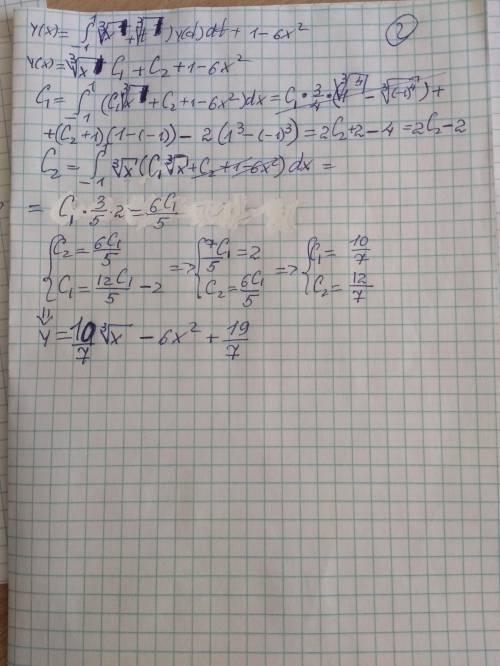 ②
y(x) = ∫₋₁¹ (∛x + ∛t) y(t) dt + 1 − 6x²
y(x) = ∛x C₁ + C₂ + 1 − 6x²
C₁ = ∫₋₁¹ (C₁∛x + C₂ + 1 − 6x²) dx = C₁ · 3/4 · (∛1⁴ − ∛(−1)⁴) +
+ (C₂ + 1)(1 − (−1)) − 2(1³ − (−1)³) = 2C₂ + 2 − 4 = 2C₂ − 2
C₂ = ∫₋₁¹ ∛x (C₁∛x + C₂ + 1 − 6x²) dx =
= C₁ · 3/5 · 2 = 6C₁/5
{ C₂ = 6C₁/5 => { 7/5 C₁ = 2 => { C₁ = 10/7
{ C₁ = 12C₁/5 − 2 { C₂ = 6C₁/5 { C₂ = 12/7
⇓
y = 10/7 ∛x − 6x² + 19/7